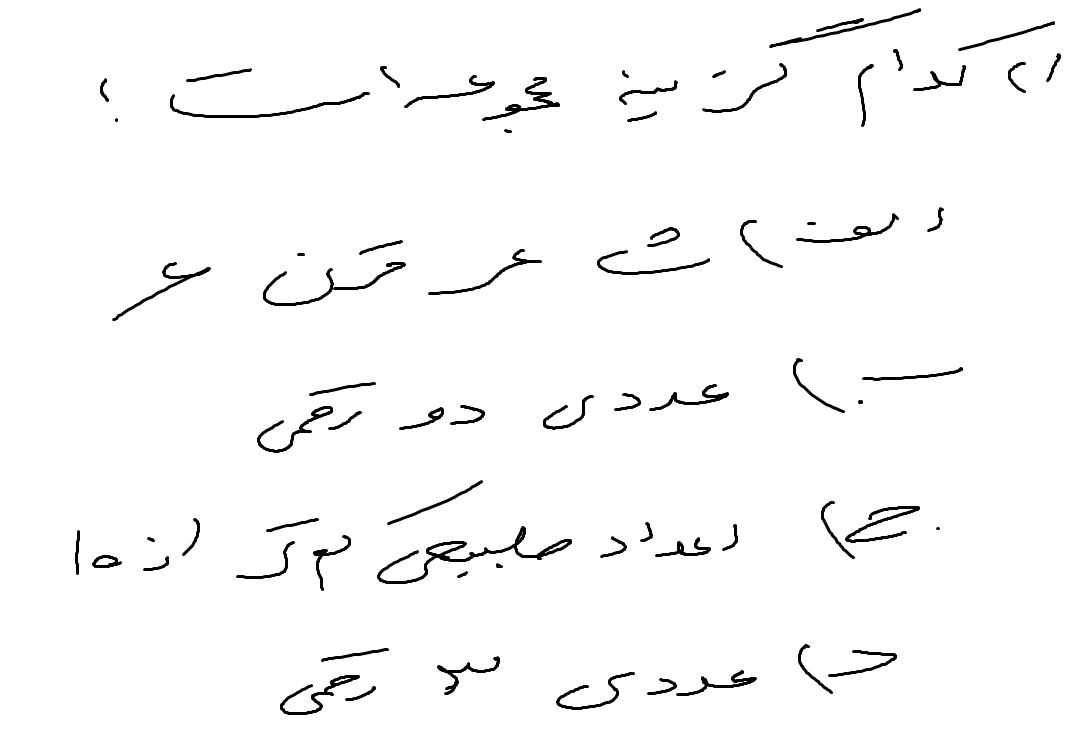 ۱) کدام گزینه مجموعه است ؟
الف) شاعر قرن
ب) عددی دو رقمی
ج) اعداد طبیعی کمتر از ۱۵
د) عددی ۳ رقمی